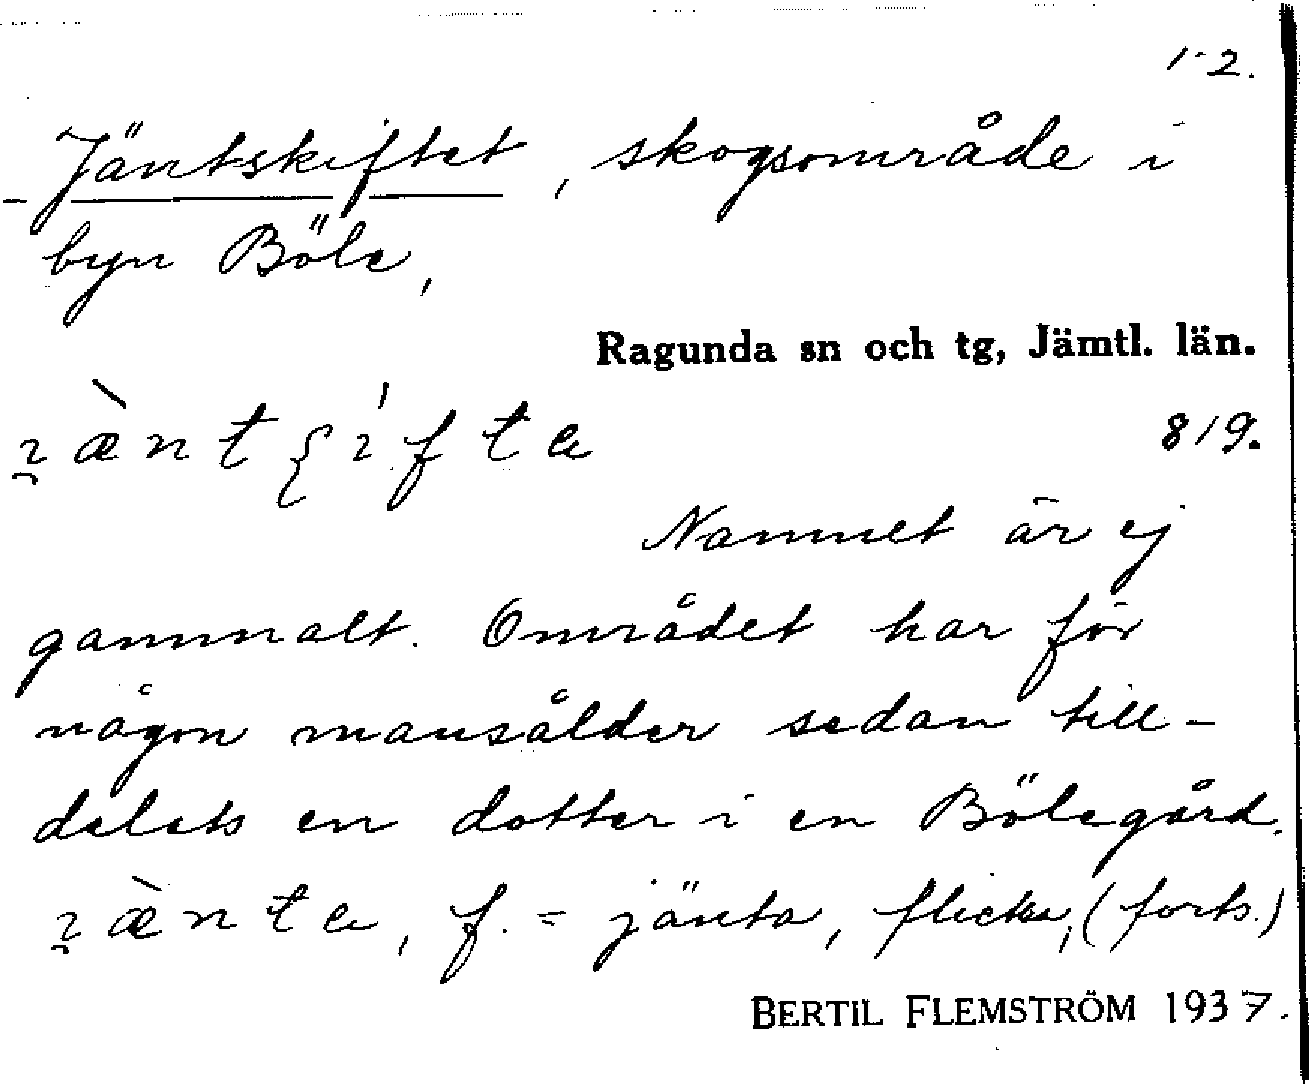 1-2.
Jäntskiftet, skogsområde i
byn Böle,
Ragunda sn och tg, Jämtl. län.
819.
Namnet är ej
gammalt. Området har för
någon mansålder sedan till-
delats en dotter i en Bölegård.
f. = jänta, flicka, (forts.)
BERTIL FLEMSTRÖM 1937.